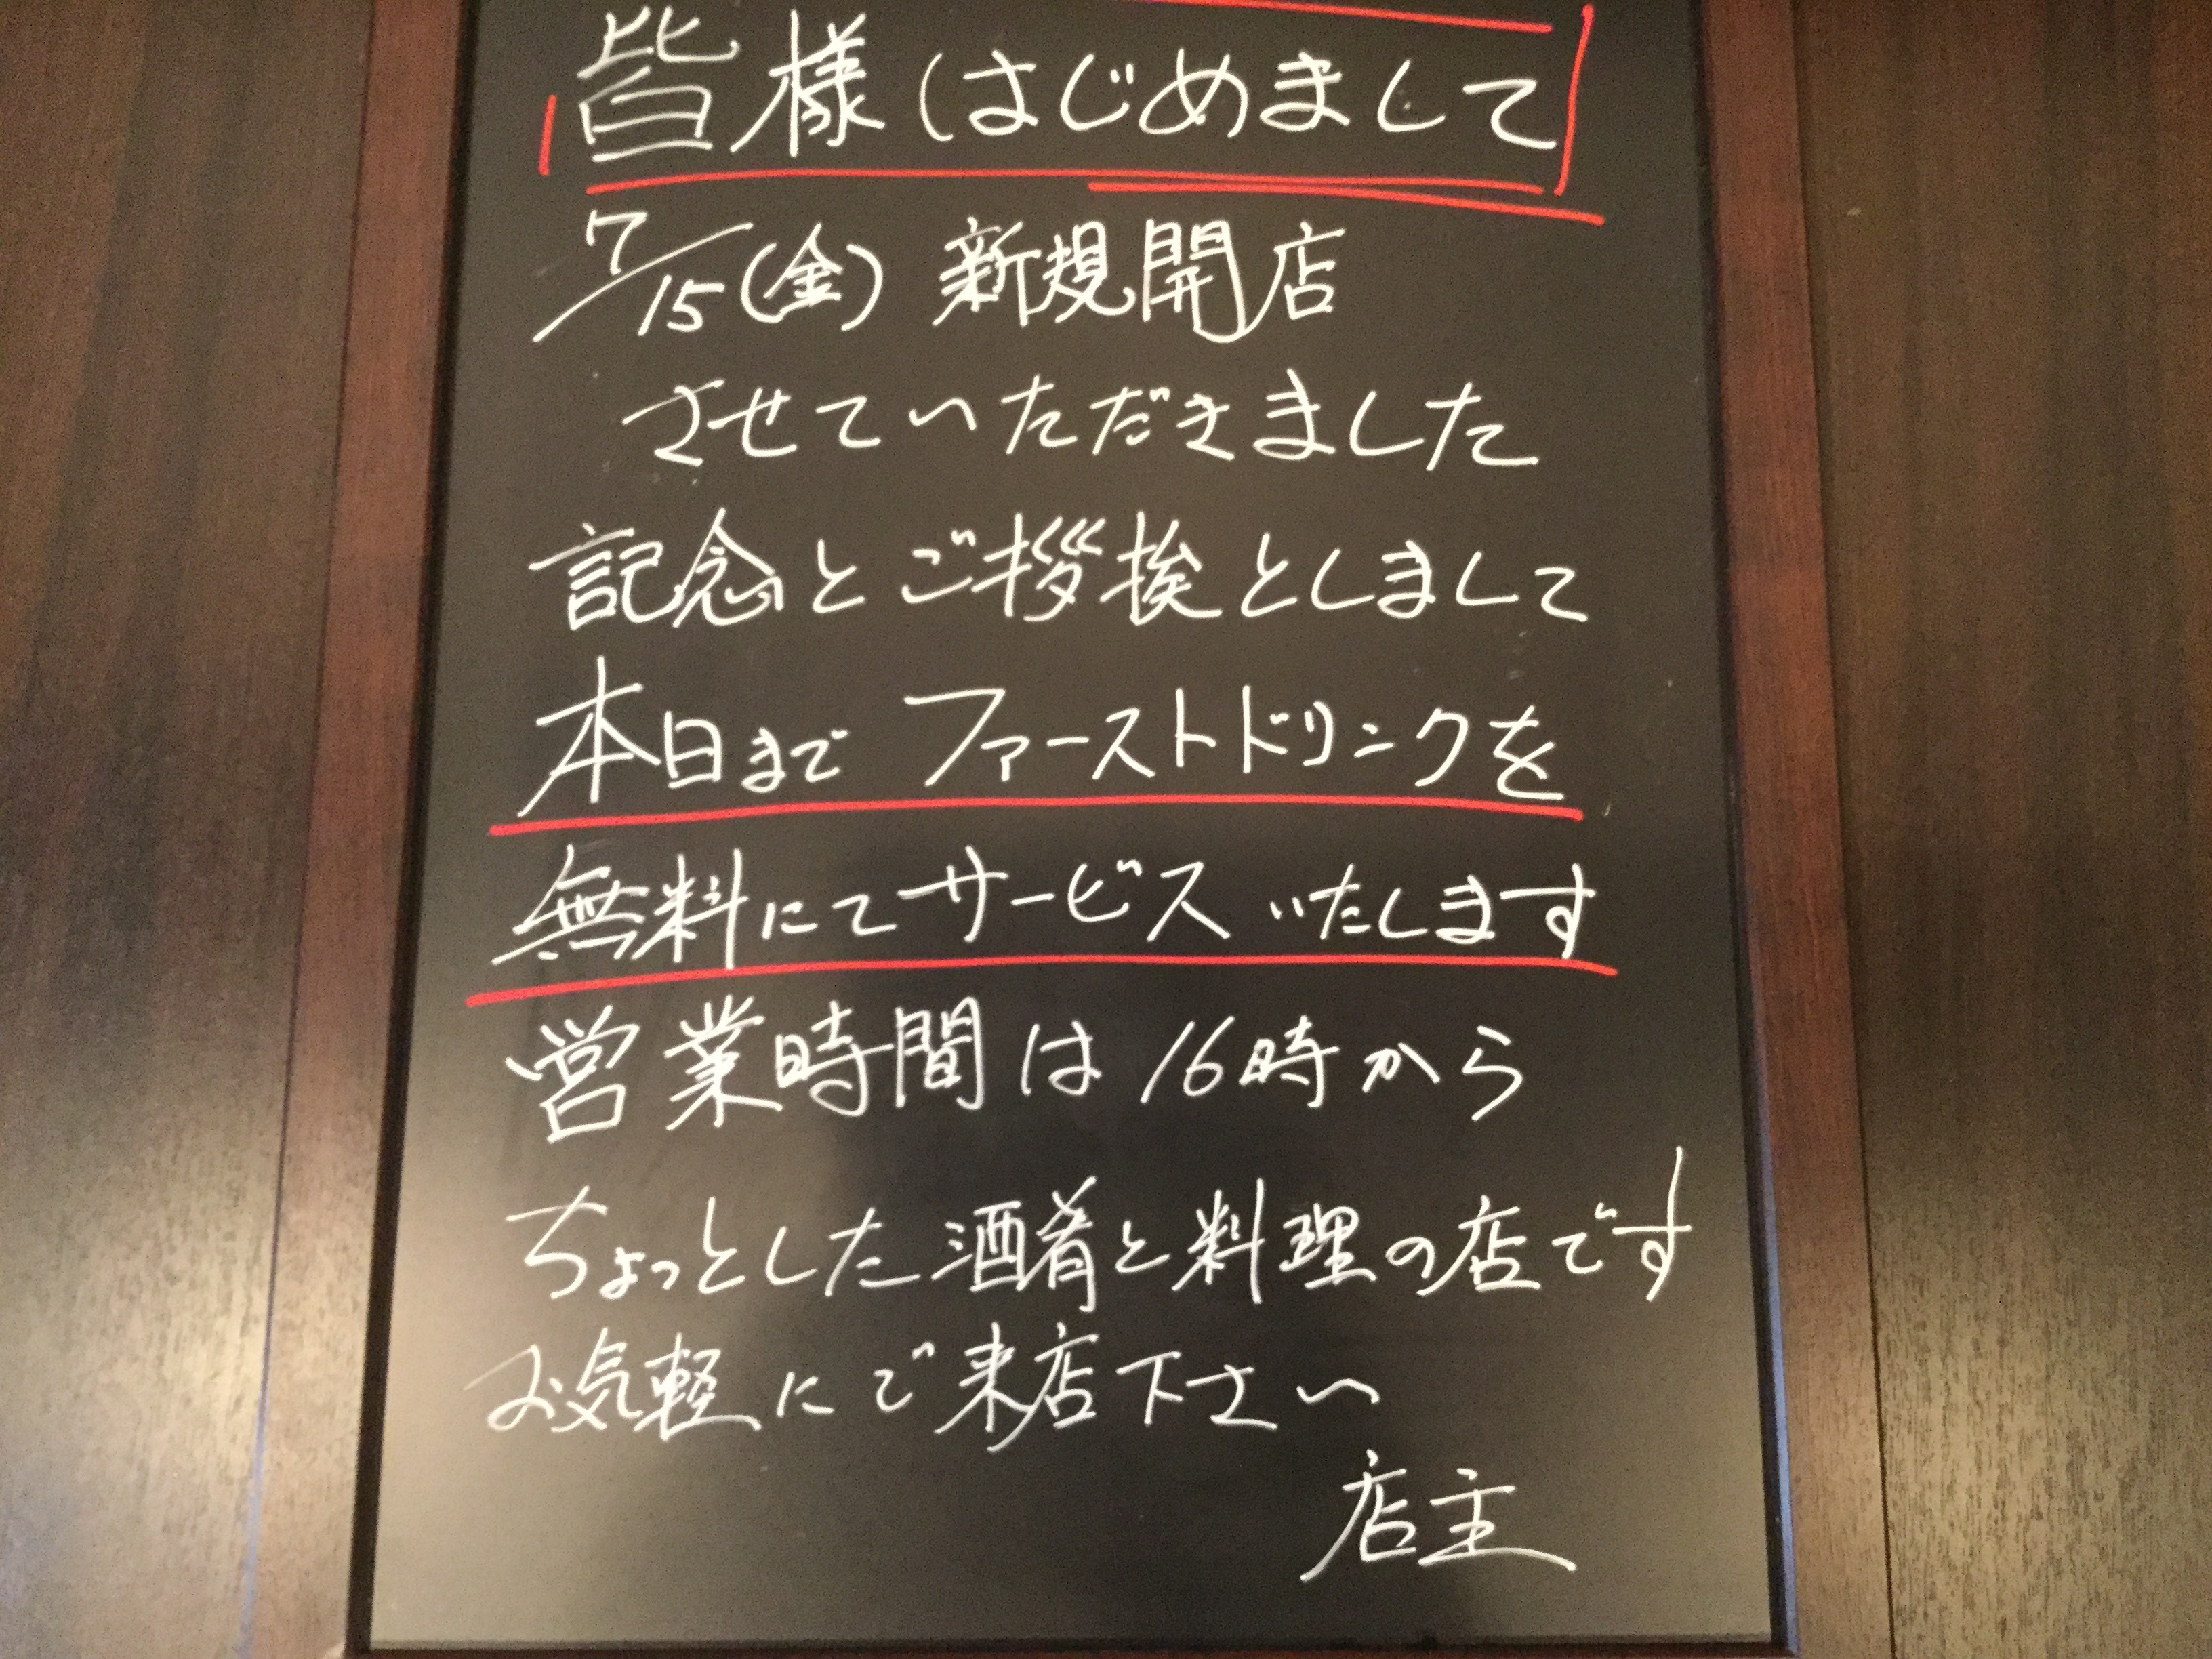 皆様はじめまして
7/15(金) 新規開店
させていただきました
記念とご挨拶としまして
本日まで ファーストドリンクを
無料にてサービス いたします
営業時間は 16時から
ちょっとした酒肴と料理の店です
お気軽にご来店下さい
店主